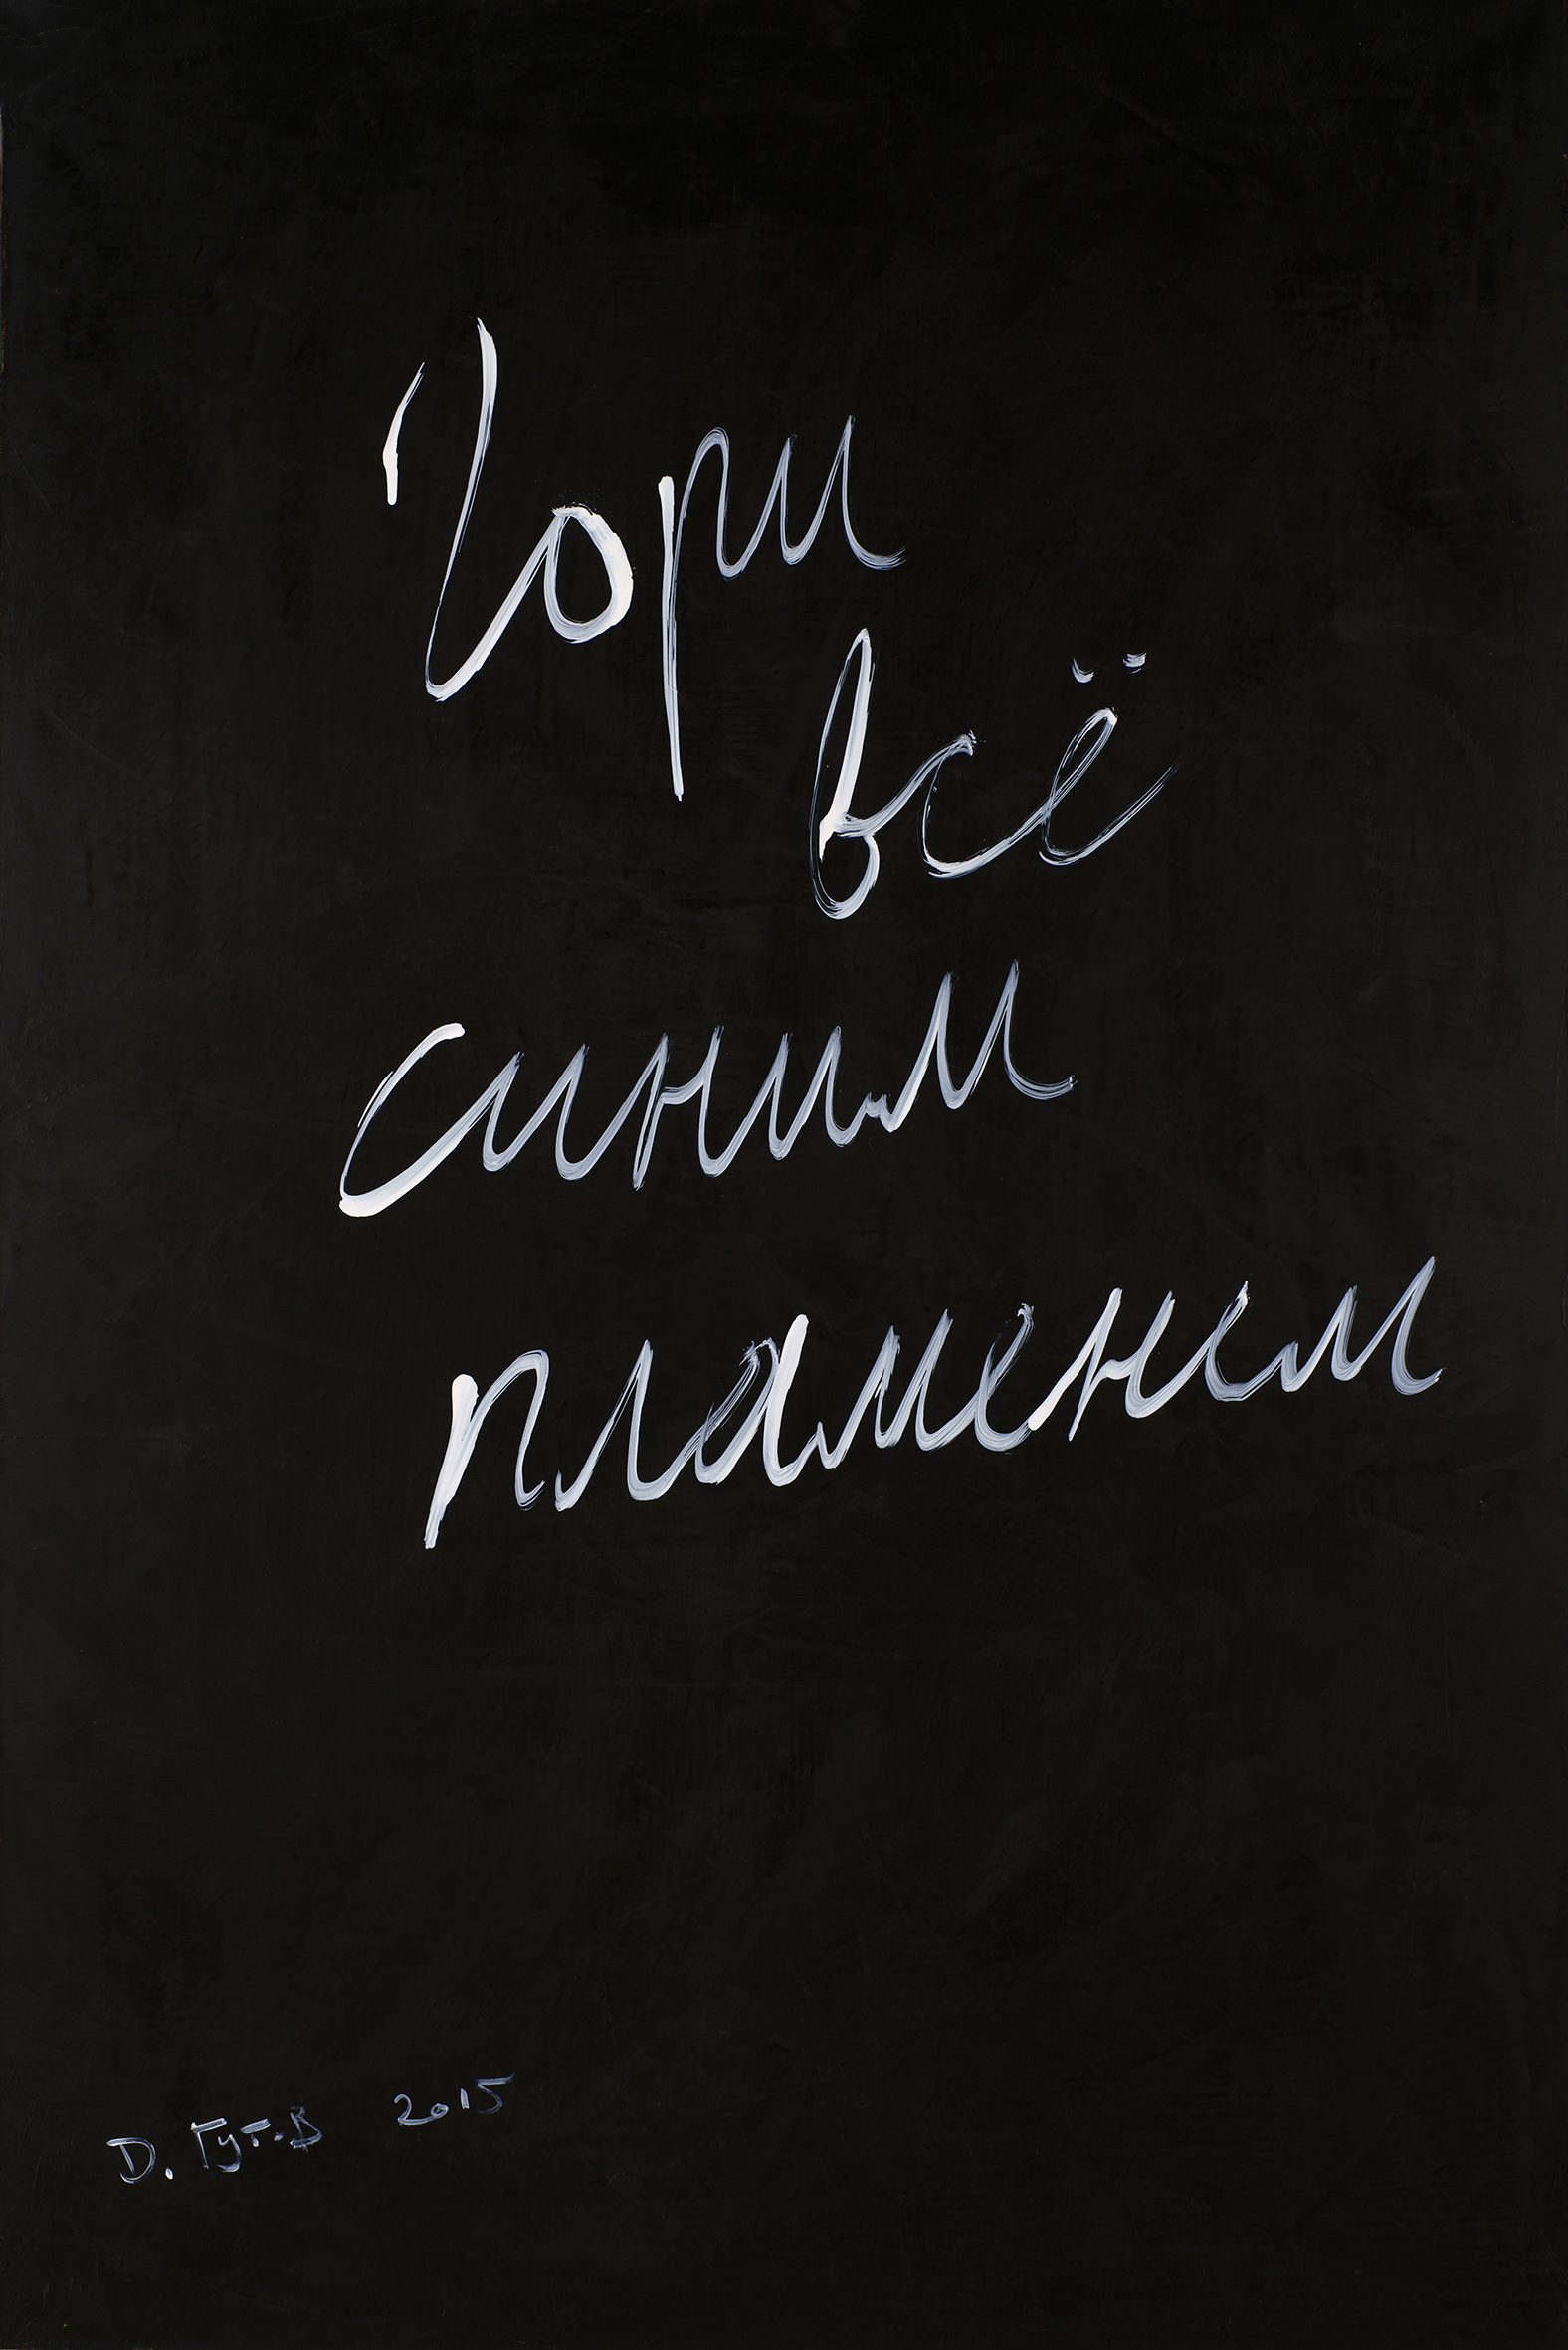 Гори
всё
синим
пламенем
D. Гутов 2015